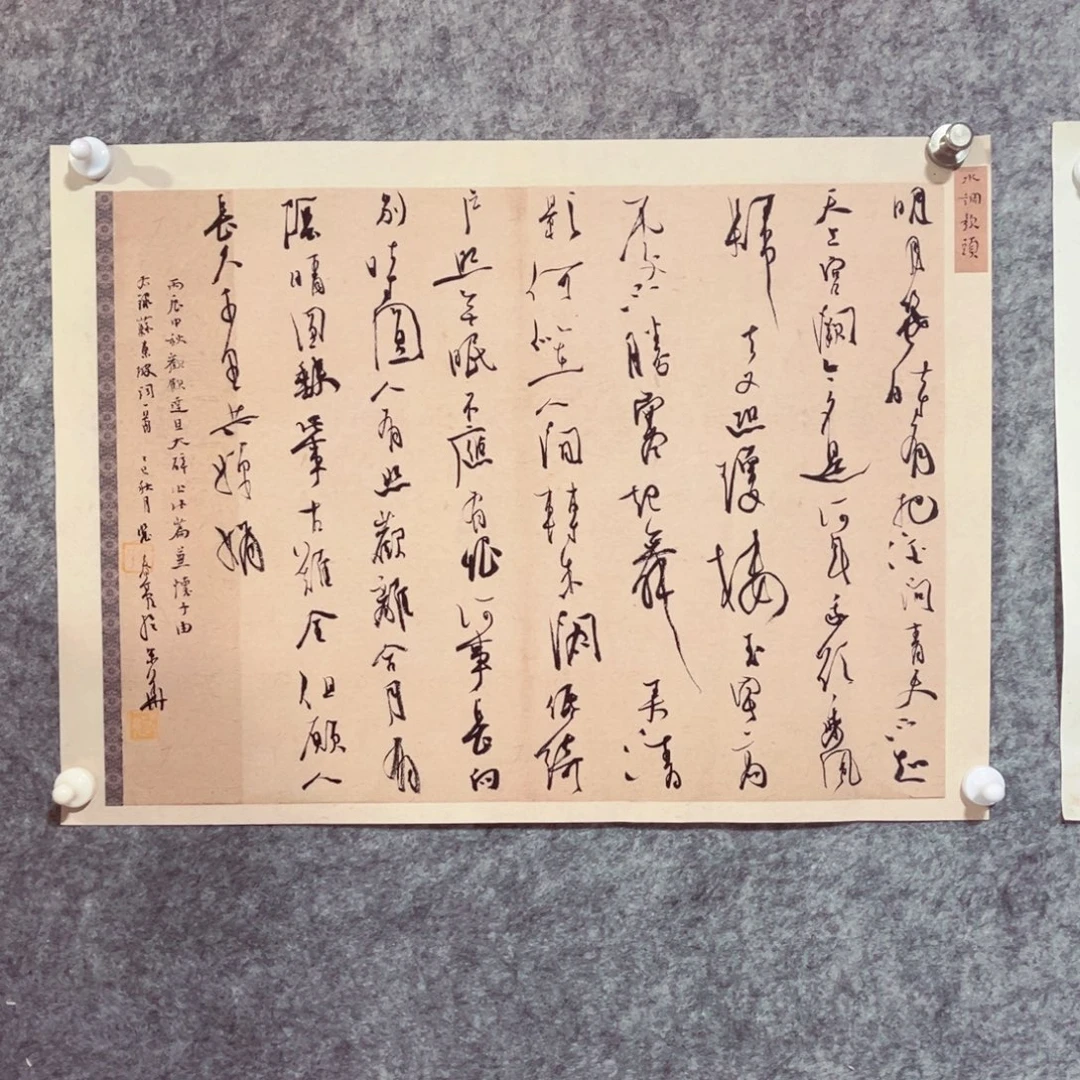 水調歌頭
明月幾時有把酒問青天不知
天上宮闕今夕是何年我欲乘風
歸去又恐瓊樓玉宇高
處不勝寒起舞弄清
影何似在人間轉朱閣低綺
户照無眠不應有恨何事長向
別時圓人有悲歡離合月有
陰晴圓缺此事古難全但願人
長久千里共嬋娟
丙辰中秋歡飲達旦大醉作此篇兼懷子由
右錄蘇東坡詞一首乙巳秋月